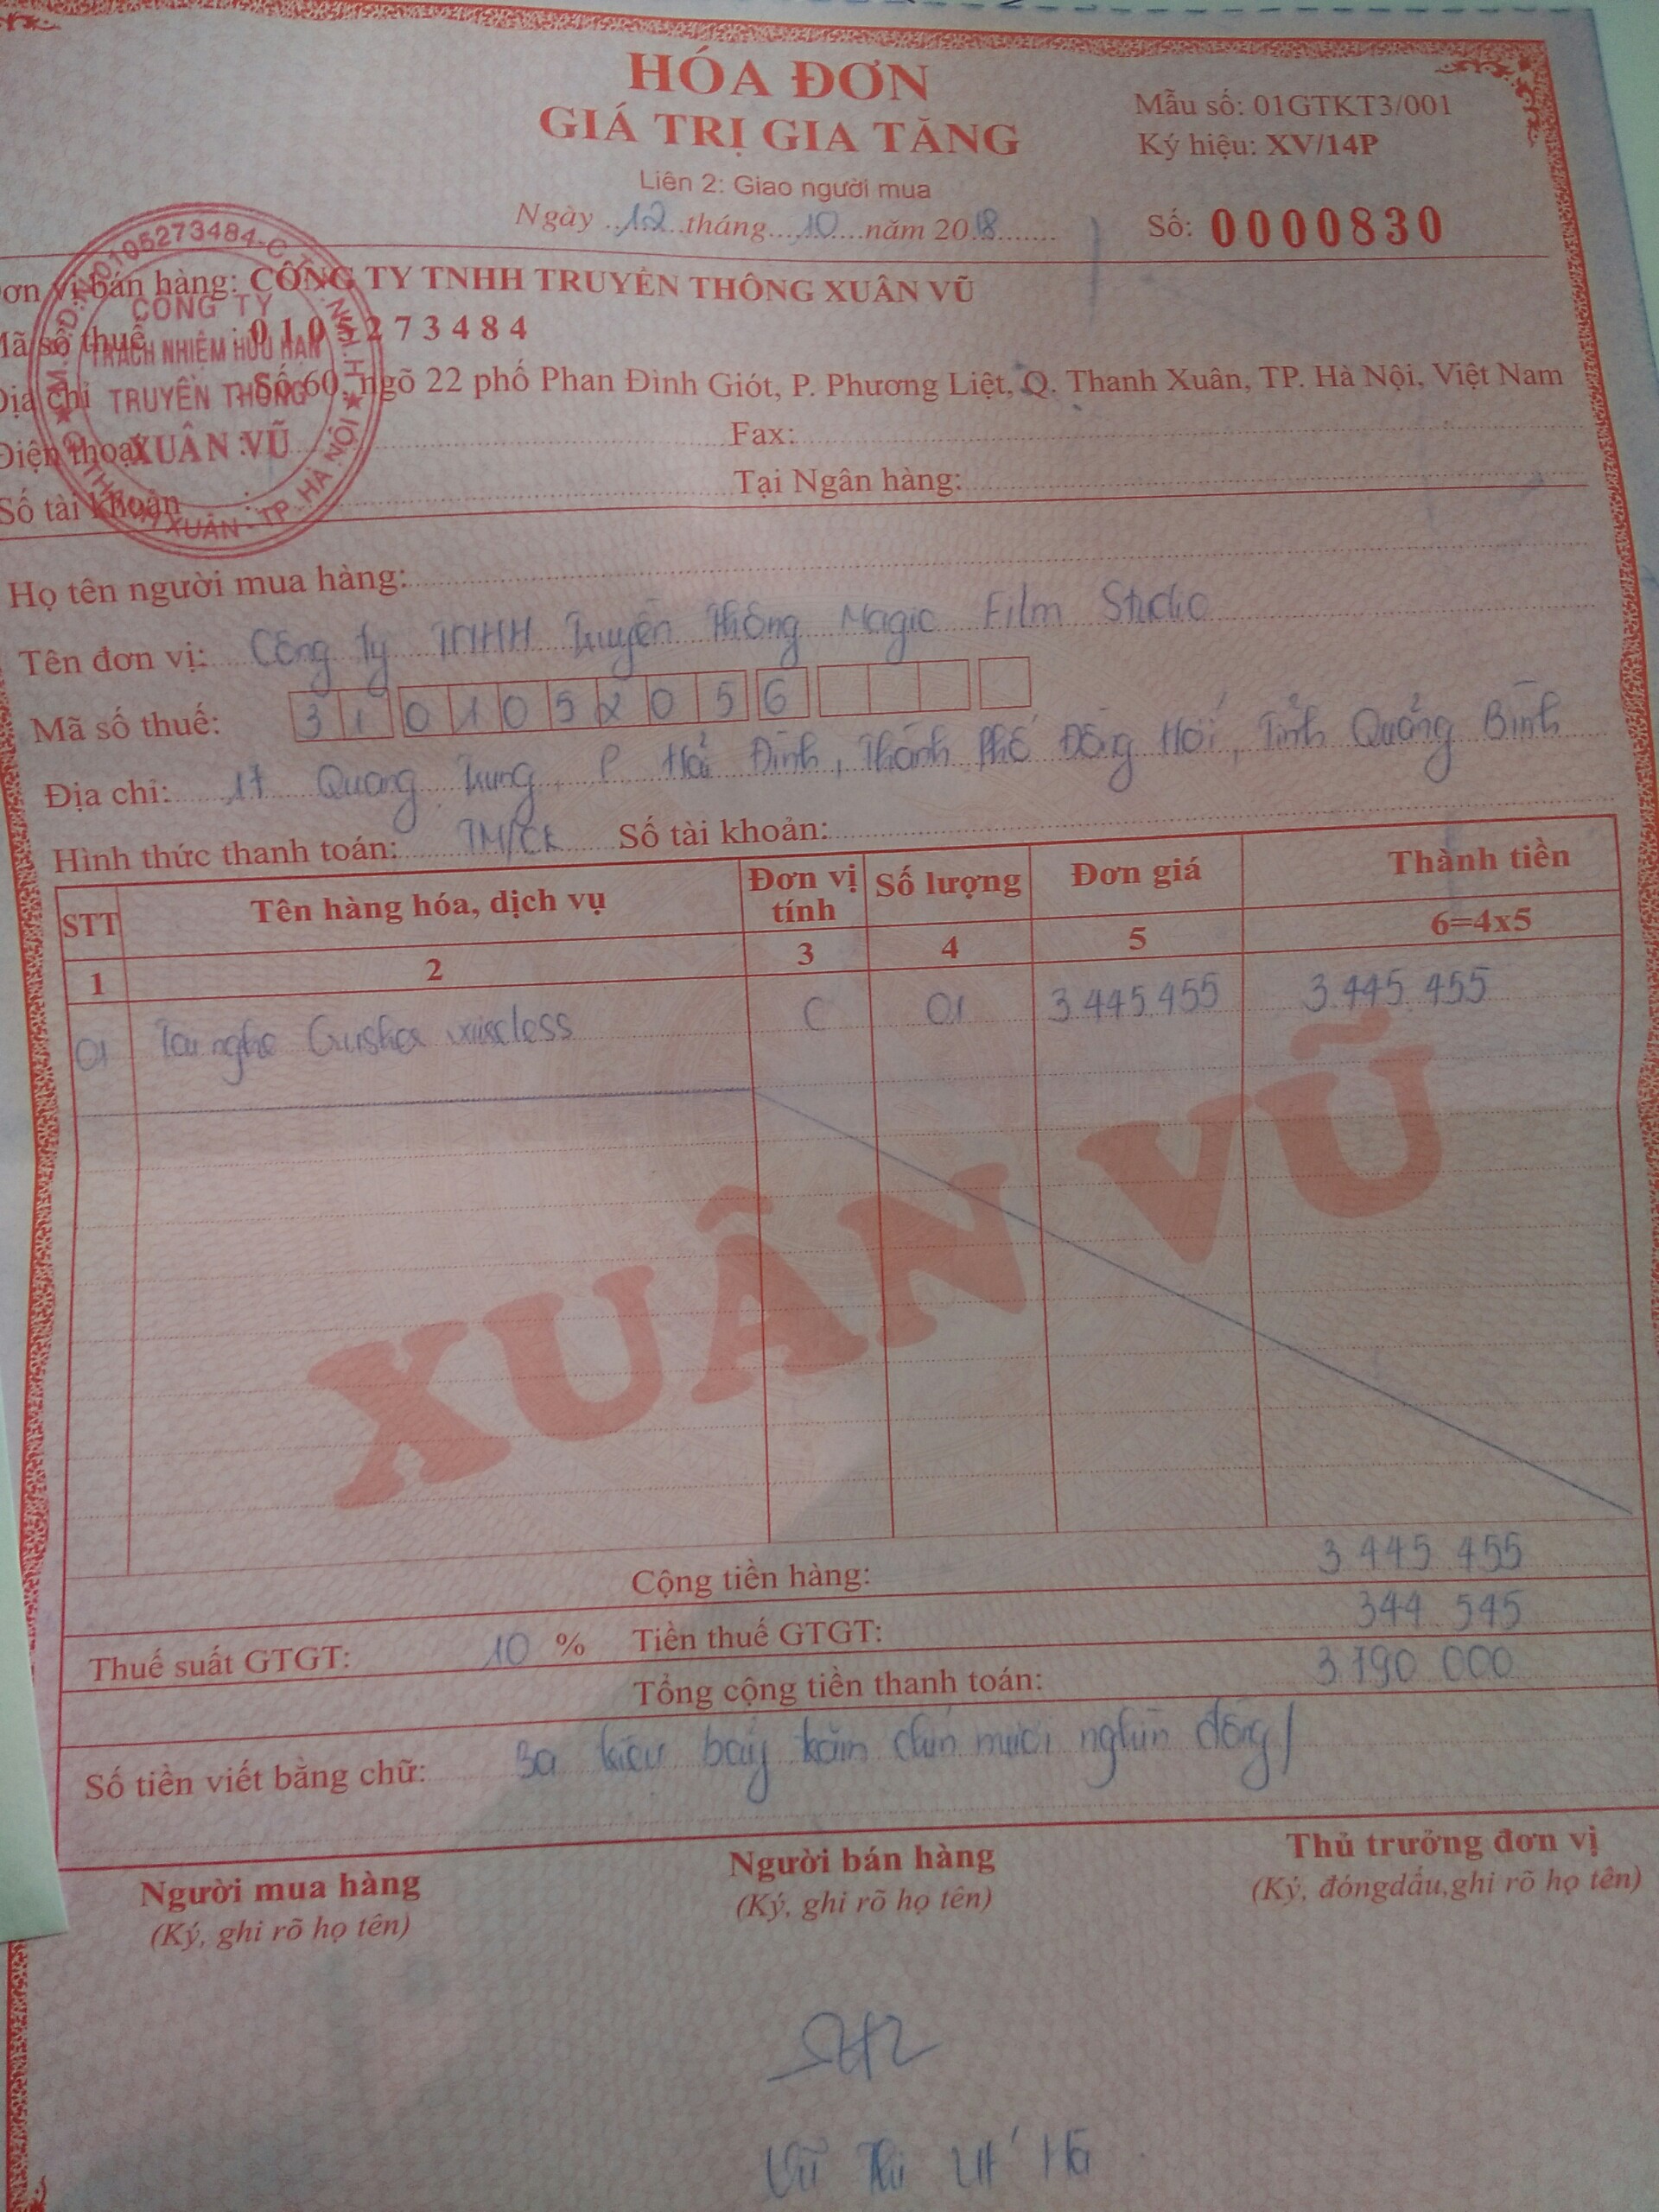 HÓA ĐƠN
GIÁ TRỊ GIA TĂNG
Liên 2: Giao người mua
Ngày 12 tháng 10 năm 2018
Mẫu số: 01GTKT3/001
Ký hiệu: XV/14P
Số: 0000830
ơn vị bán hàng: CÔNG TY TNHH TRUYỀN THÔNG XUÂN VŨ
Mã số thuế : 0105273484
Địa chỉ : Số 60, ngõ 22 phố Phan Đình Giót, P. Phương Liệt, Q. Thanh Xuân, TP. Hà Nội, Việt Nam
Điện thoại : Fax:
Số tài khoản : Tại Ngân hàng:
M.S.D.N:0105273484-C.T.T.N.H.H
CÔNG TY
TRÁCH NHIỆM HỮU HẠN
TRUYỀN THÔNG
XUÂN VŨ
Q. THANH XUÂN - TP. HÀ NỘI
Họ tên người mua hàng:
Tên đơn vị: Công ty TNHH Truyền Thông Magic Film Studio
Mã số thuế: 3101052056
Địa chỉ: 17 Quang Trung, P Hải Đình, Thành Phố Đồng Hới, Tỉnh Quảng Bình
Hình thức thanh toán: TM/CK Số tài khoản:
STT Tên hàng hóa, dịch vụ Đơn vị tính Số lượng Đơn giá Thành tiền
1 2 3 4 5 6=4x5
01 Tai nghe Crusher wireless C 01 3.445.455 3.445.455
XUÂN VŨ
Cộng tiền hàng: 3 445 455
Thuế suất GTGT: 10 % Tiền thuế GTGT: 344 545
Tổng cộng tiền thanh toán: 3.790 000
Số tiền viết bằng chữ: Ba triệu bảy trăm chín mươi nghìn đồng/
Người mua hàng Người bán hàng Thủ trưởng đơn vị
(Ký, ghi rõ họ tên) (Ký, ghi rõ họ tên) (Ký, đóngdấu,ghi rõ họ tên)
Vũ Thị